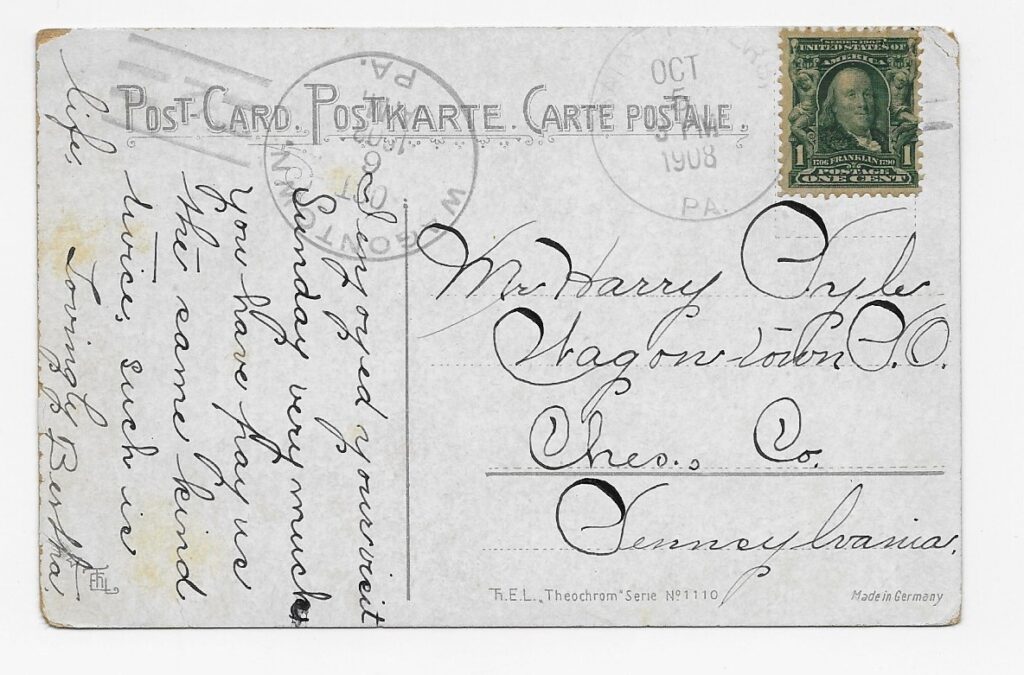 POST-CARD. POSTKARTE. CARTE POSTALE.
OCT
5
1908
PA.
WAGONTOWN
PA.
OCT
6
1908
SERIES 1902
UNITED STATES OF
AMERICA
1 1706 FRANKLIN 1790 1
POSTAGE
ONE CENT
I enjoyed your visit
Sunday very much
you have pay us
the same kind
twice, such is
life,
Lovingly Bertha.
Mr Harry Pyle
Wagontown P.O.
Ches., Co.
Pennsylvania.
T.H.E.L. „Theochrom" Serie Nº 1110
Made in Germany